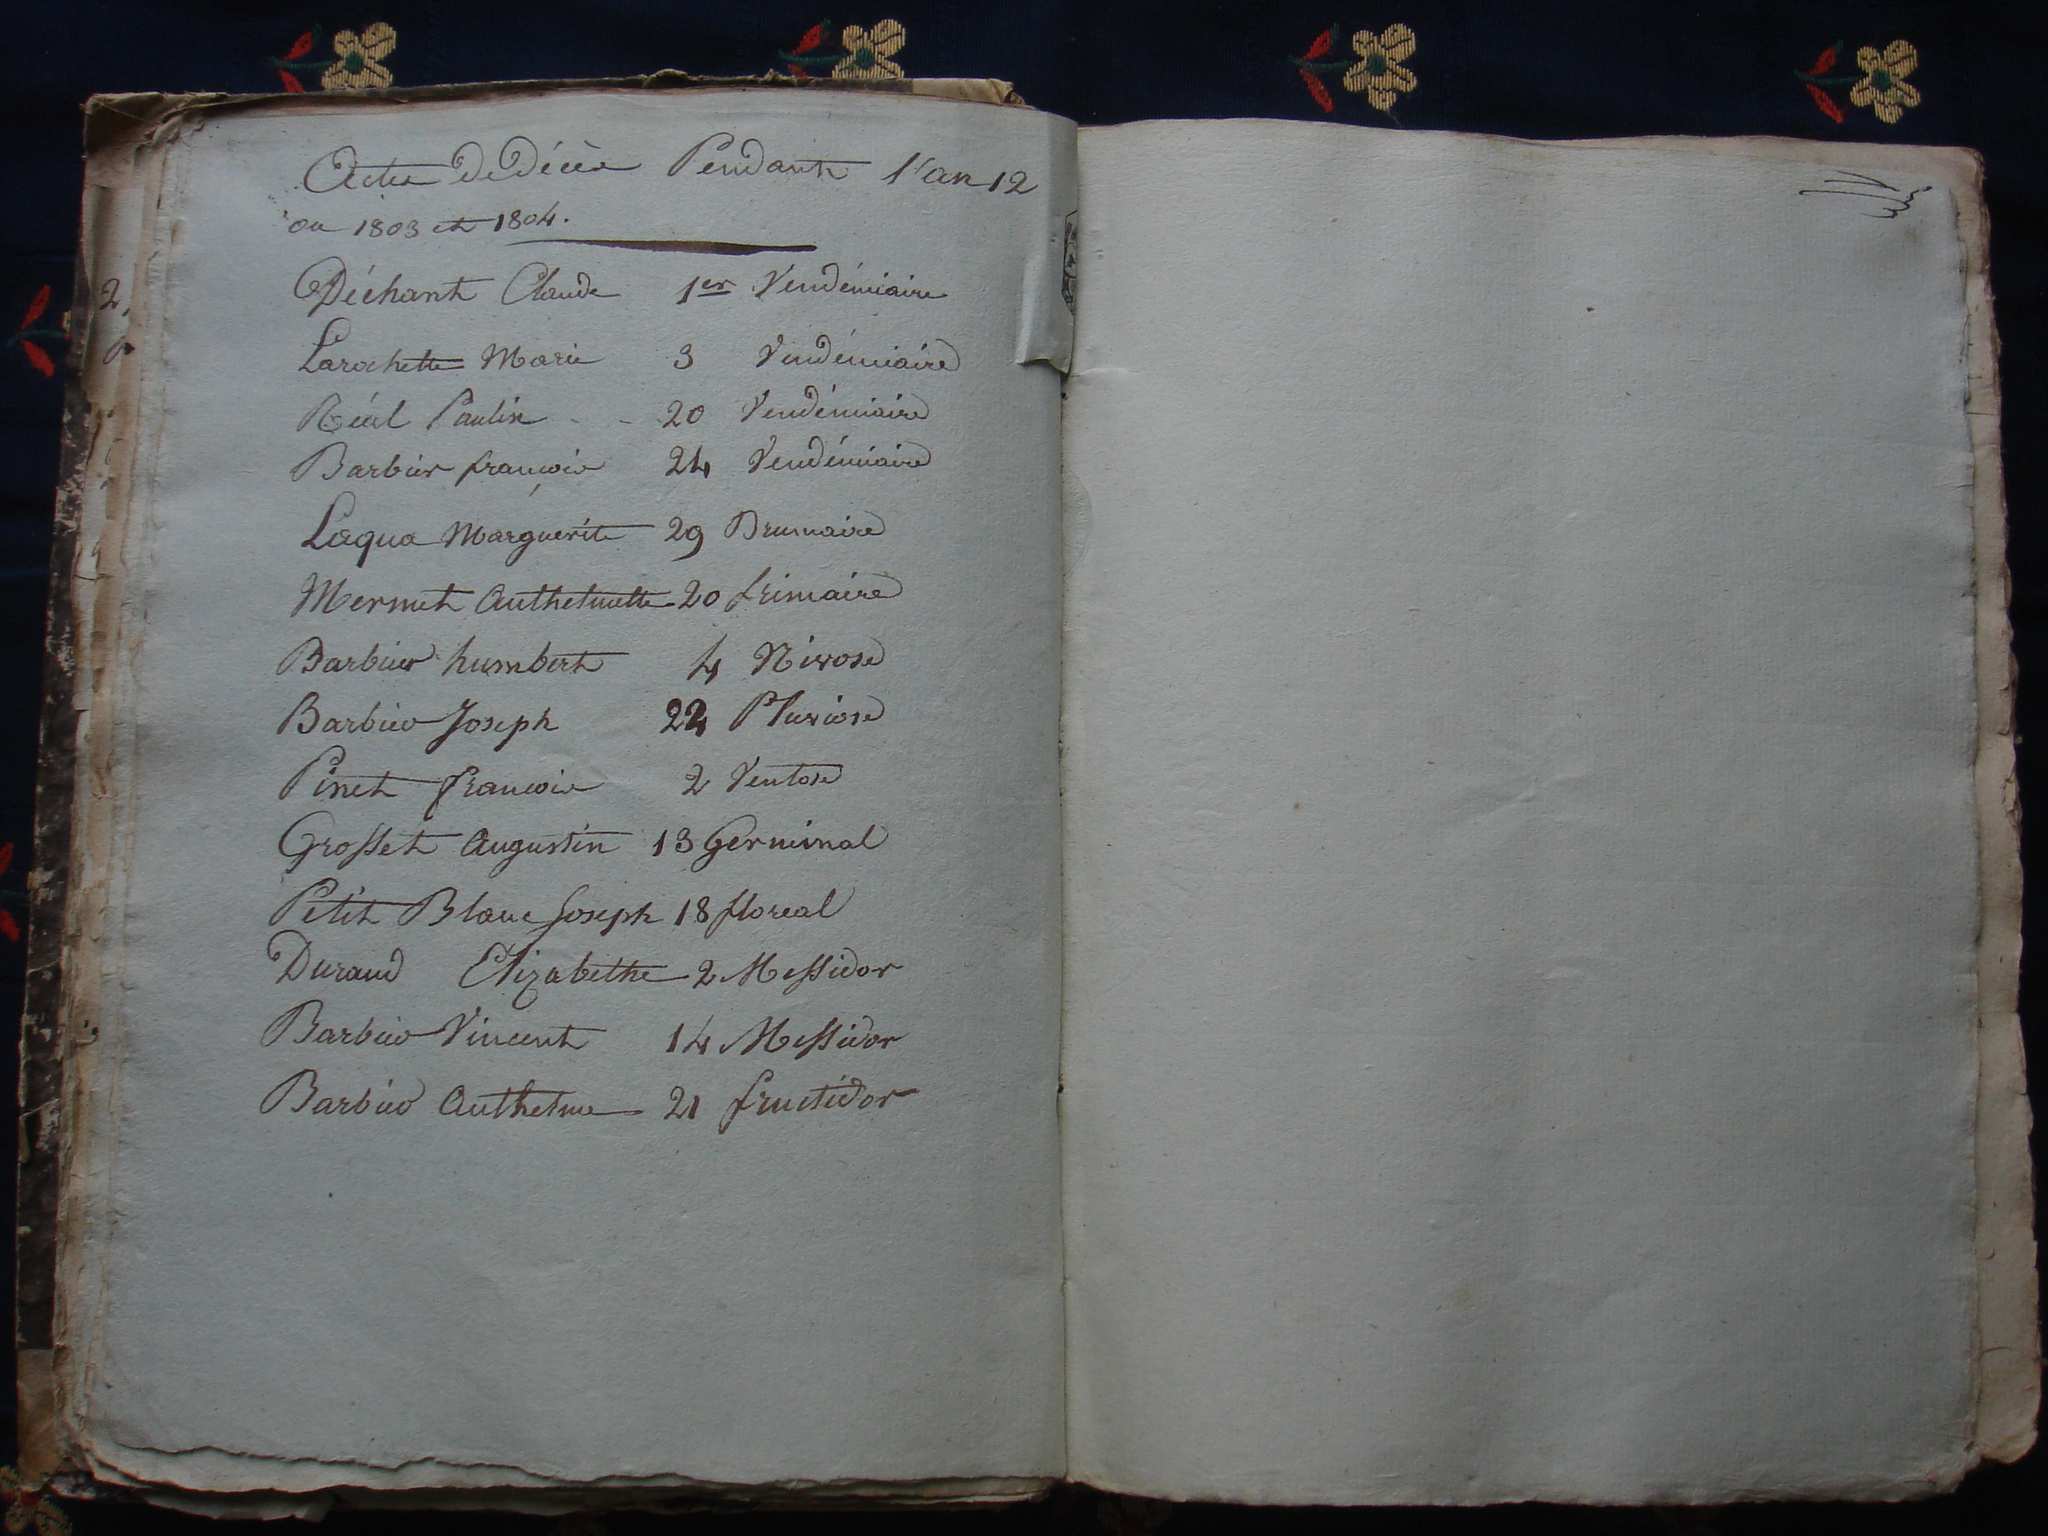 Actes De Décès Pendant l'an 12
ou 1803 et 1804.
Déchant Claude 1er Vendémiaire
Larochette Marie 3 Vendémiaire
Réal Paulin - - 20 Vendémiaire
Barbier francois 24 Vendémiaire
Laqua Marguérite 29 Brumaire
Mermet Anthelmette 20 frimaire
Barbier humbert 4 Nivose
Barbier Joseph 22 Pluviose
Pinet francois 2 Ventose
Grosset Augustin 13 Germinal
Petit Blanc Joseph 18 floreal
Durand Elizabethe 2 Messidor
Barbier Vincent 14 Messidor
Barbier Anthelme 21 fructidor